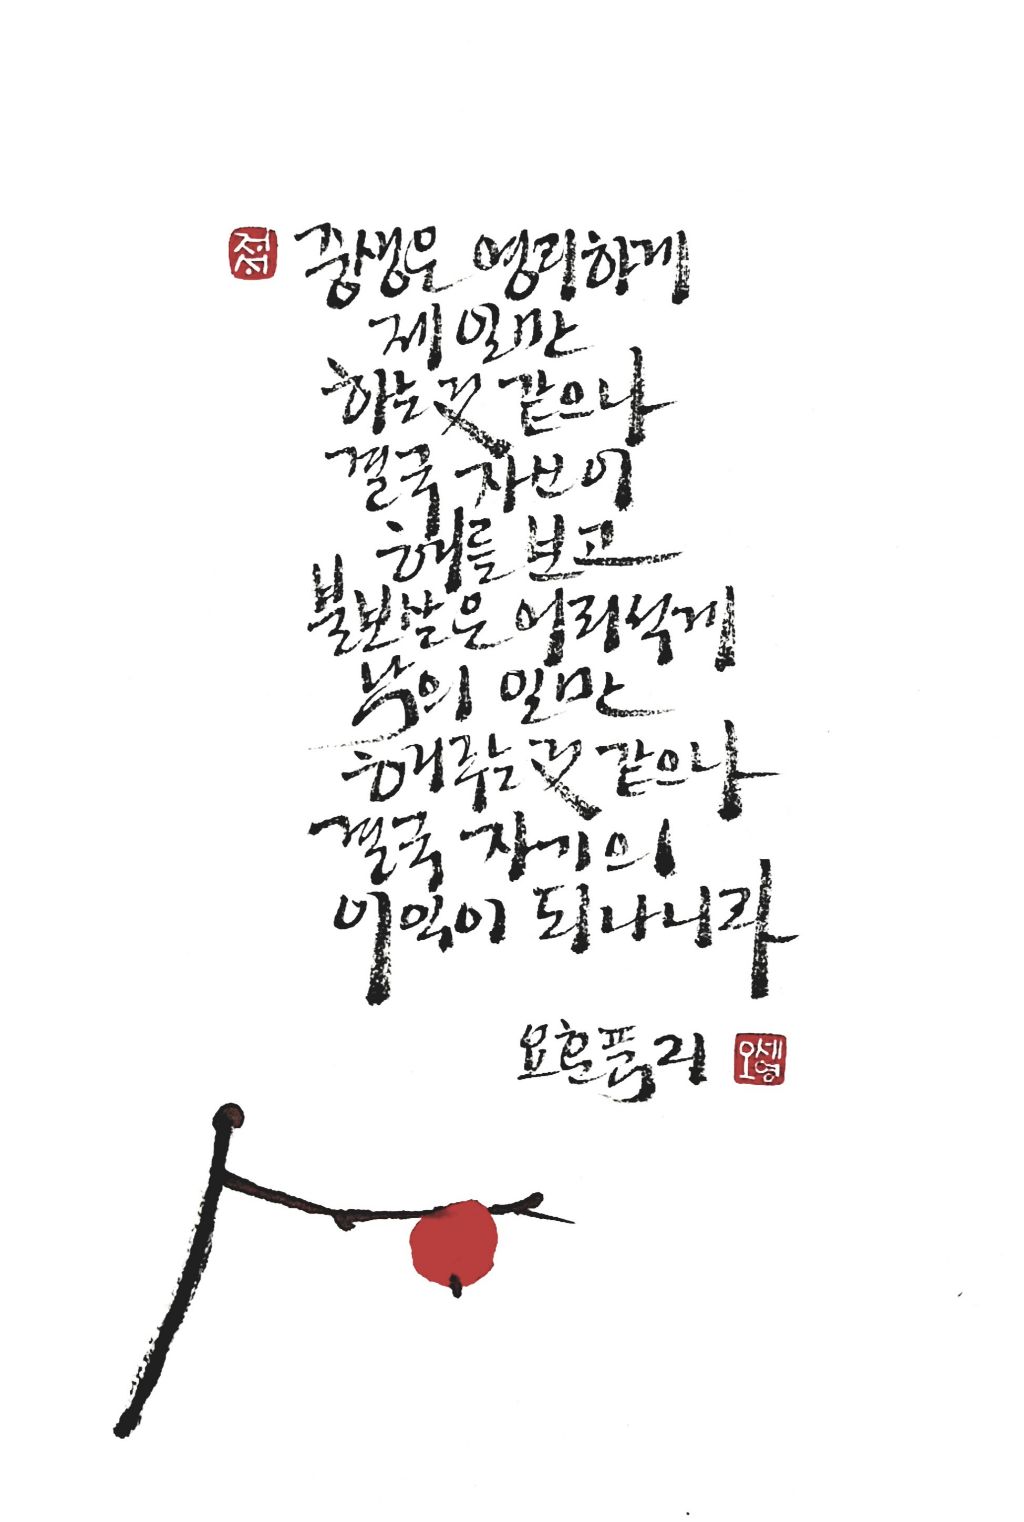 중생은 영리하게
제 일만
하는 것 같으나
결국 자신이
해를 보고
불보살은 어리석게
남의 일만
해주는 것 같으나
결국 자기의
이익이 되나니라
오세영